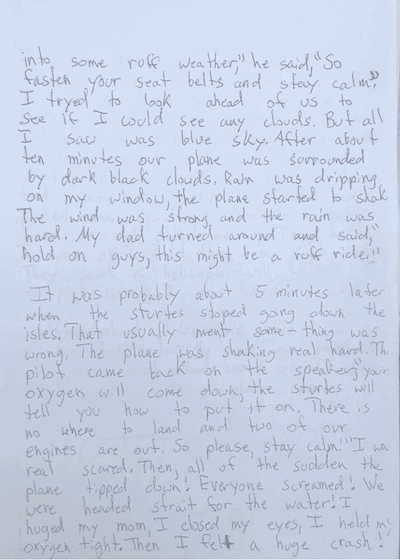 into some ruff weather," he said, "So
fasten your seat belts and stay calm."
I tryed to look ahead of us to
see if I could see any clouds. But all
I saw was blue sky. After about
ten minutes our plane was surrounded
by dark black clouds. Rain was dripping
on my window, the plane started to shak
The wind was strong and the rain was
hard. My dad turned around and said,"
hold on guys, this might be a ruff ride."
It was probably about 5 minutes later
when the sturtes stoped going down the
isles. That usually ment some-thing was
wrong. The plane was shaking real hard. Th
pilot came back on the speaker, "your
oxygen will come down, the sturtes will
tell you how to put it on. There is
no where to land and two of our
engines are out. So please, stay calm!" I wa
real scared. Then, all of the sudden the
plane tipped down! Everyone screamed! We
were headed strait for the water! I
huged my mom, I closed my eyes, I held my
oxygen tight. Then I felt a huge crash!